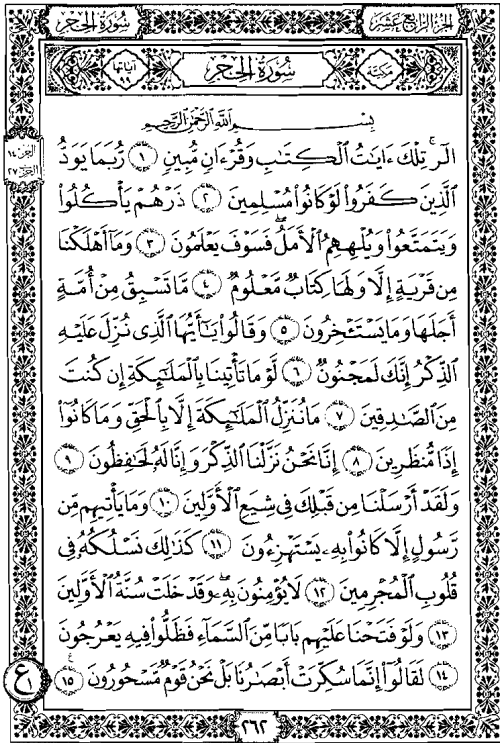 الجزء الرابع عشر
سورة الحجر
مكية
سورة الحجر
آياتها
بِسْمِ اللَّهِ الرَّحْمَٰنِ الرَّحِيمِ
الٓر ۚ تِلْكَ ءَايَٰتُ ٱلْكِتَٰبِ وَقُرْءَانٍ مُّبِينٍ ١ رُّبَمَا يَوَدُّ
ٱلَّذِينَ كَفَرُوا۟ لَوْ كَانُوا۟ مُسْلِمِينَ ٢ ذَرْهُمْ يَأْكُلُوا۟
وَيَتَمَتَّعُوا۟ وَيُلْهِهِمُ ٱلْأَمَلُ ۖ فَسَوْفَ يَعْلَمُونَ ٣ وَمَآ أَهْلَكْنَا
مِن قَرْيَةٍ إِلَّا وَلَهَا كِتَابٌ مَّعْلُومٌ ٤ مَّا تَسْبِقُ مِنْ أُمَّةٍ
أَجَلَهَا وَمَا يَسْتَـْٔخِرُونَ ٥ وَقَالُوا۟ يَٰٓأَيُّهَا ٱلَّذِى نُزِّلَ عَلَيْهِ
ٱلذِّكْرُ إِنَّكَ لَمَجْنُونٌ ٦ لَّوْ مَا تَأْتِينَا بِٱلْمَلَٰٓئِكَةِ إِن كُنتَ
مِنَ ٱلصَّٰدِقِينَ ٧ مَا نُنَزِّلُ ٱلْمَلَٰٓئِكَةَ إِلَّا بِٱلْحَقِّ وَمَا كَانُوٓا۟
إِذًا مُّنظَرِينَ ٨ إِنَّا نَحْنُ نَزَّلْنَا ٱلذِّكْرَ وَإِنَّا لَهُۥ لَحَٰفِظُونَ ٩
وَلَقَدْ أَرْسَلْنَا مِن قَبْلِكَ فِى شِيَعِ ٱلْأَوَّلِينَ ١٠ وَمَا يَأْتِيهِم مِّن
رَّسُولٍ إِلَّا كَانُوا۟ بِهِۦ يَسْتَهْزِءُونَ ١١ كَذَٰلِكَ نَسْلُكُهُۥ فِى
قُلُوبِ ٱلْمُجْرِمِينَ ١٢ لَا يُؤْمِنُونَ بِهِۦ ۖ وَقَدْ خَلَتْ سُنَّةُ ٱلْأَوَّلِينَ
١٣ وَلَوْ فَتَحْنَا عَلَيْهِم بَابًا مِّنَ ٱلسَّمَآءِ فَظَلُّوا۟ فِيهِ يَعْرُجُونَ
١٤ لَقَالُوٓا۟ إِنَّمَا سُكِّرَتْ أَبْصَٰرُنَا بَلْ نَحْنُ قَوْمٌ مَّسْحُورُونَ ١٥
ع ١
٢٦٢